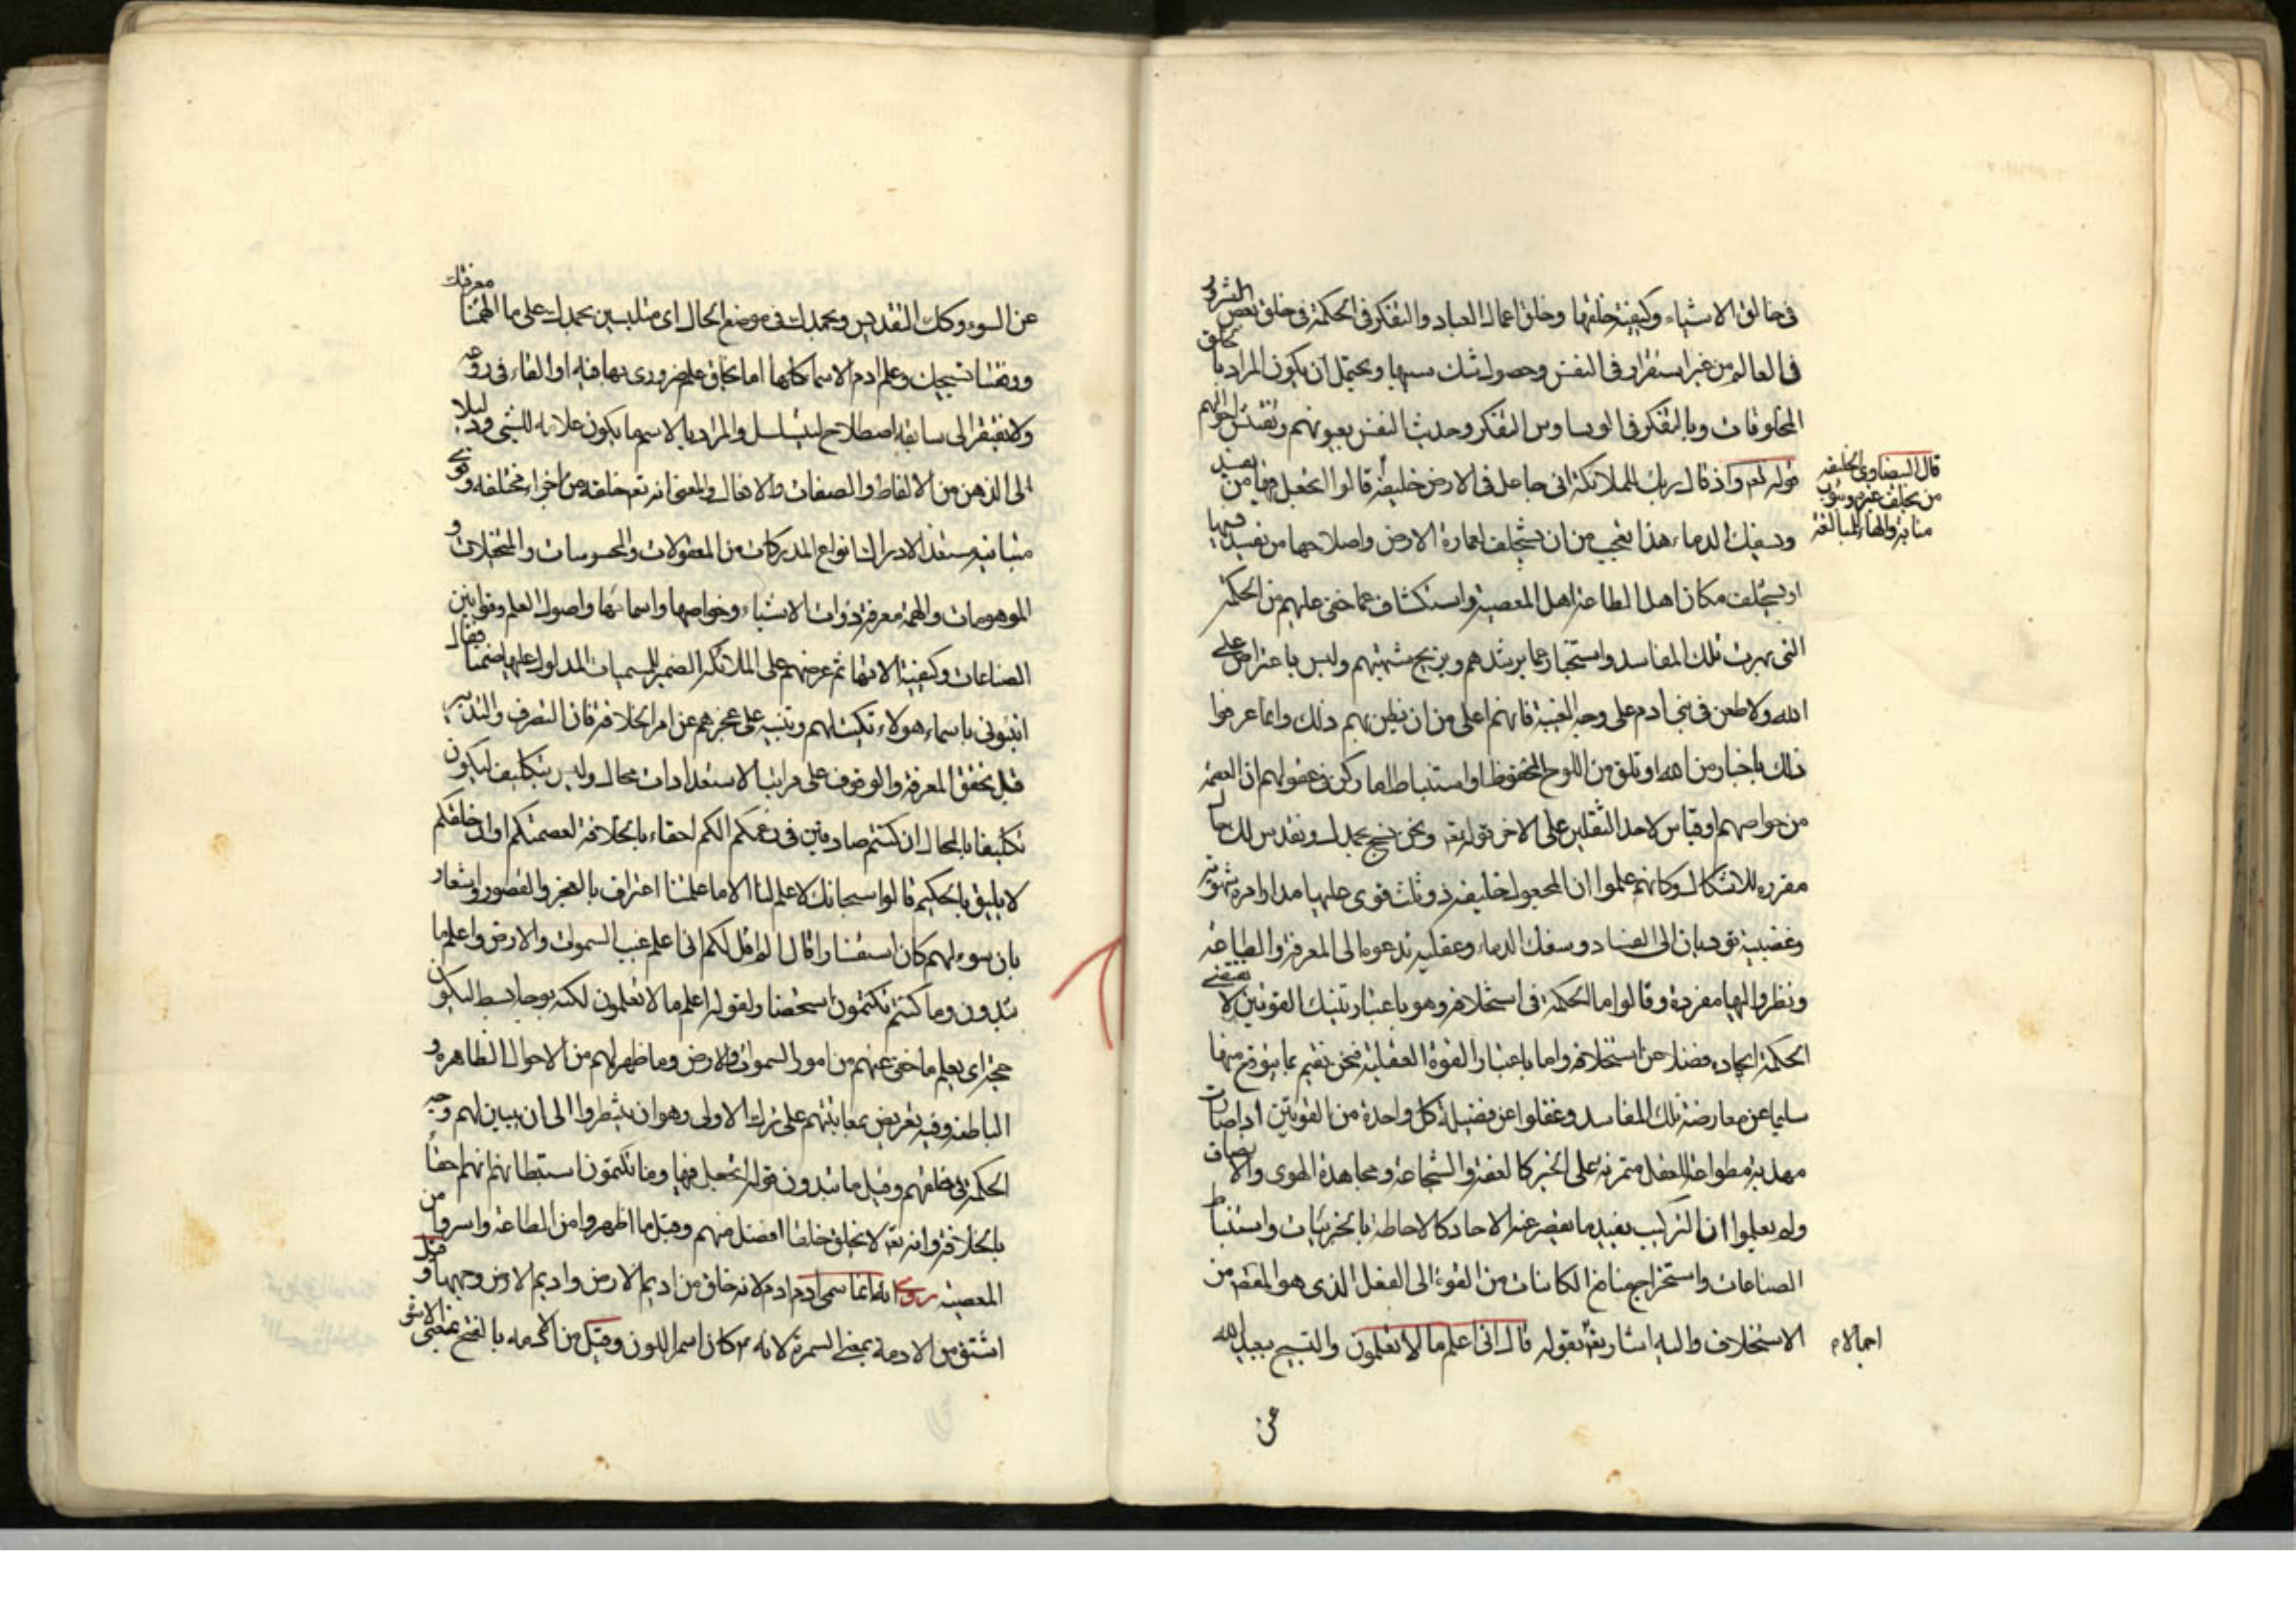 فى خالق الاشياء وكيفية خلقها وخلق اعمال العباد والتفكر فى الحكمة فى خلق بعض الشرور
فى العالم من غير استقرار فى النفس وحصول شك بسببها ويحتمل ان يكون المراد بالخلق
المخلوقات وبالتفكر فى الوساوس التفكر وحديث النفس بعيوبهم وتفتيش احوالهم
قوله تعه واذ قال ربك للملائكة انى جاعل فى الارض خليفة قالوا اتجعل فيها من يفسد فيها
ويسفك الدماء هذا تعجب من ان يستخلف لعمارة الارض واصلاحها من يفسد فيها
او يستخلف مكان اهل الطاعة اهل المعصية واستكشاف عما خفى عليهم من الحكمة
التى بهرت تلك المفاسد واستخبار عما يرشدهم ويزيح شبهتهم وليس باعتراض على
الله ولا طعن فى بنى ادم على وجه الغيبة فانهم اعلى من ان يظن بهم ذلك وانما عرفوا
ذلك باخبار من الله او تلق من اللوح المحفوظ او استنباط لما ركن فى عقولهم ان العصمة
من خواصهم او قياس لاحد الثقلين على الاخر قوله تعه ونحن نسبح بحمدك ونقدس لك حال
مقررة للاشكال وكانهم علموا ان المجعول خليفة ذو ثلث قوى عليها مدار امره شهوية
وغضبية تؤديان الى الفساد وسفك الدماء وعقلية تدعوه الى المعرفة والطاعة
ونظروا اليها مفردة وقالوا ما الحكمة فى استخلافه وهو باعتبار تينك القوتين لا تقتضى
الحكمة ايجاده فضلا عن استخلافه واما باعتبار القوة العقلية فنحن نقيم بما يتوقع منها
سليما عن معارضة تلك المفاسد وغفلوا عن فضيلة كل واحدة من القوتين اذا صارت
مهذبة مطواعة للعقل متمرنة على الخير كالعفة والشجاعة ومجاهدة الهوى والانصاف
ولم يعلموا ان التركيب يفيد ما يقصر عنه الاحاد كالاحاطة بالجزئيات واستنباط
الصناعات واستخراج منافع الكاينات من القوة الى الفعل الذى هو المقصد من
الاستخلاف واليه اشار تعه بقوله قال انى اعلم ما لا تعلمون والتسبيح تبعيد الله
قال البيضاوى الخليفة
من يخلف غيره وينوب
منابه والهاء للمبالغة
اجمالا م
عن
عن السوء وكك التقديس وبحمدك فى موضع الحال اى متلبسين بحمدك على ما الهمتنا معرفتك
ووفقتنا لتسبيحك وعلم ادم الاسماء كلها اما بخلق علم ضرورى بها فيه او القاء فى روعه
ولا يفتقر الى سابقة اصطلاح ليتسلسل والمراد بالاسم ما يكون علامة للشىء ودليلا
الى الذهن من الالفاظ والصفات والافعال والمعنى انه تعه خلقه من اجزاء مختلفة وقوى
متباينة مستعدا لادراك انواع المدركات من المعقولات والمحسوسات والمتخيلات و
الموهومات والهمه معرفة ذوات الاشياء وخواصها واسمائها واصول العلم وقوانين
الصناعات وكيفية الاتها ثم عرضهم على الملائكة الضمير للمسميات المدلول عليها ضمنا فقال
انبئونى باسماء هولاء تبكيت لهم وتنبيه على عجزهم عن امر الخلافة فان التصرف والتدبير
قبل تحقق المعرفة والوقوف على مراتب الاستعدادات محال وليس بتكليف ليكون
تكليفا بالمحال ان كنتم صادقين فى زعمكم انكم احقاء بالخلافة لعصمتكم او ان خلقكم
لا يليق بالحكيم قالوا سبحانك لا علم لنا الا ما علمتنا اعتراف بالعجز والقصور واشعار
بان سوءلهم كان استفسارا قال الم اقل لكم انى اعلم غيب السموات والارض واعلم ما
تبدون وما كنتم تكتمون استحضار لقوله اعلم ما لا تعلمون لكنه بوجه ابسط ليكون
حجة اى يعلم ما خفى عنهم من امور السموات والارض وما ظهر لهم من الاحوال الظاهرة و
الباطنة وفيه تعريض بمعاتبتهم على ترك الاولى وهو ان ينتظروا الى ان يبين لهم وجه
الحكمة فى خلقهم وقيل ما تبدون قولهم اتجعل فيها وما تكتمون استبطانهم انهم احقا
بالخلافة وانه تعه لا يخلق خلقا افضل منهم وقيل ما اظهروا من الطاعة واسروا من
المعصية روى انه انما سمى ادم ادم لانه خلق من اديم الارض واديم الارض وجهها وقيل
اشتق من الادمة بمعنى السمرة لانه ع كان اسمر اللون وقيل من الادمه بالفتح بمعنى الاسوة